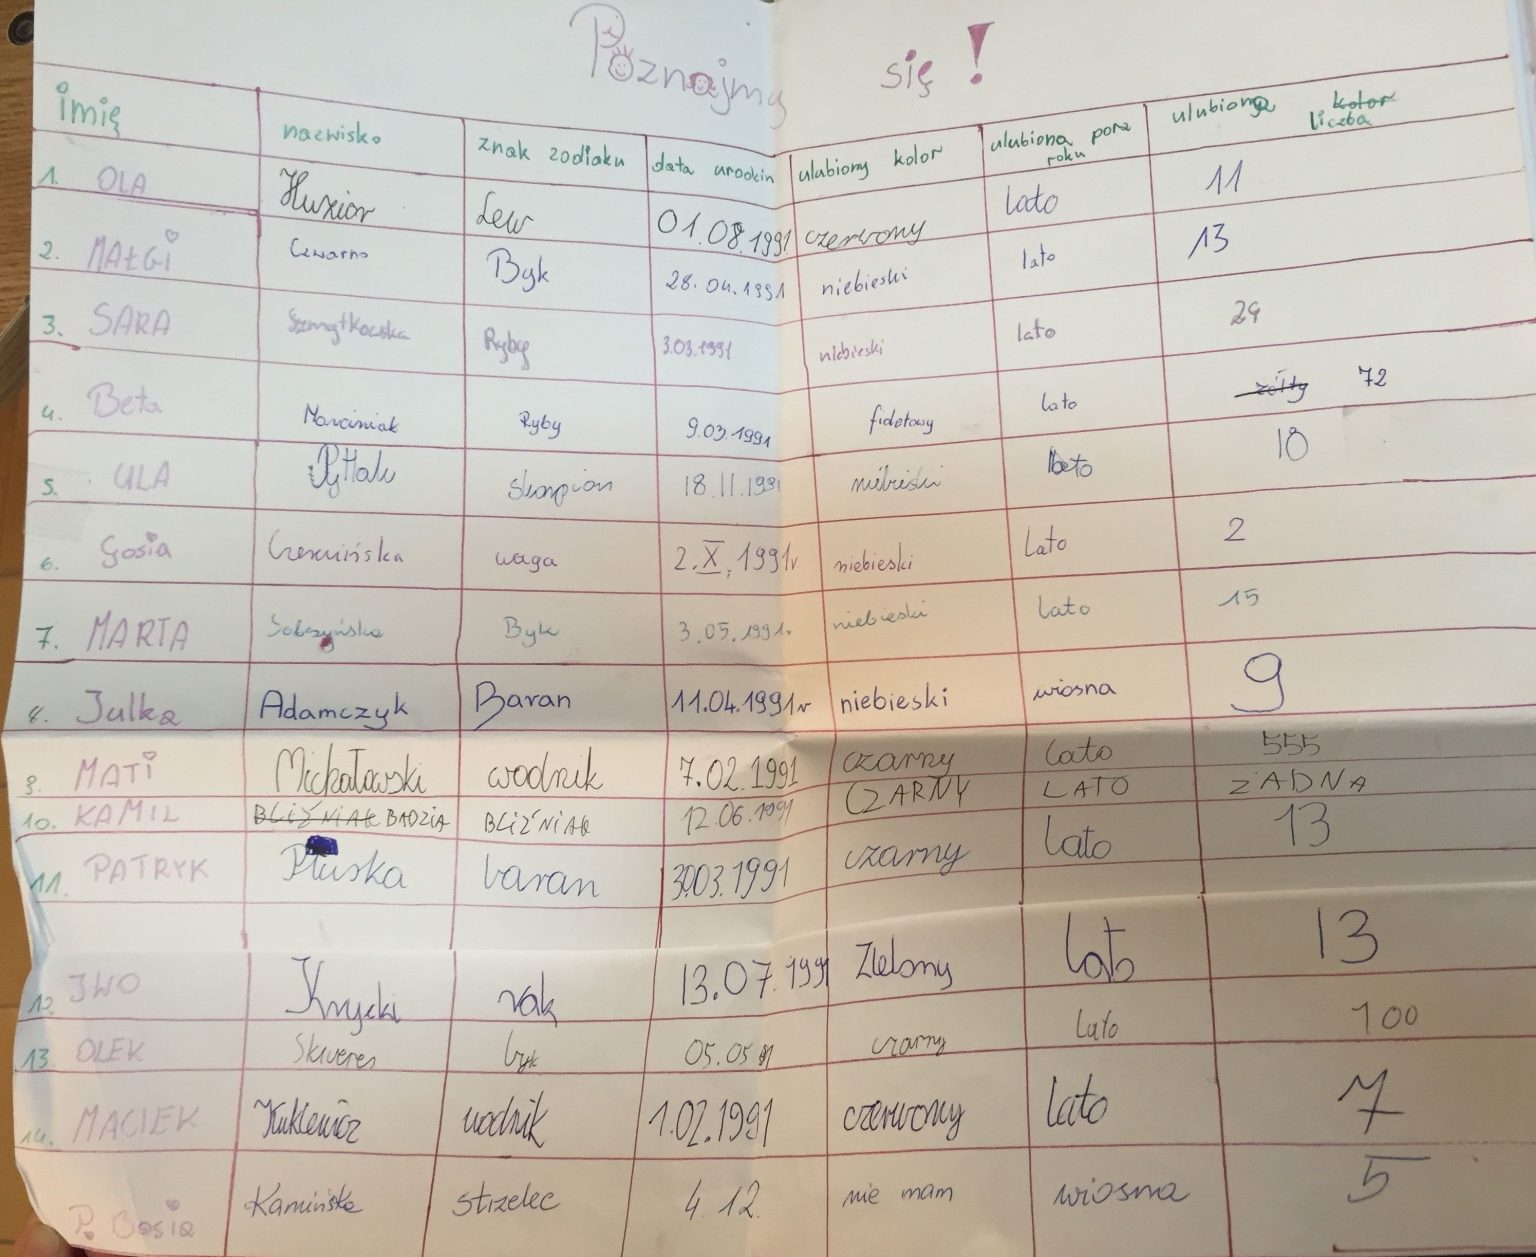 Poznajmy się!
imię nazwisko znak zodiaku data urodzin ulubiony kolor ulubiona pora roku ulubiona kolor liczba
1. OLA Huzior Lew 01.08.1991 czerwony lato 11
2. MAŁGI Czwarno Byk 28.04.1991 niebieski lato 13
3. SARA Ryby 3.03.1991 niebieski lato 29
4. Beta Marciniak Ryby 9.03.1991 fioletowy lato żółty 72
5. ULA Pyttak skorpion 18.11.1991 niebieski lato 18
6. Gosia Czerwińska waga 2.X.1991r niebieski lato 2
7. MARTA Sobczyńska Byk 3.05.1991r. niebieski lato 15
8. Julka Adamczyk Baran 11.04.1991r niebieski wiosna 9
9. MATI Michałowski wodnik 7.02.1991 czarny lato 555
10. KAMIL BLIŹNIAK BADZIA BLIŹNIAK 12.06.1991 CZARNY LATO ŻADNA
11. PATRYK Pluska baran 30.03.1991 czarny lato 13
12. IWO Krycki rak 13.07.1991 Zielony lato 13
13. OLEK Skweres byk 05.05.91 czarny lato 100
14. MACIEK Kuklewicz wodnik 1.02.1991 czerwony lato 7
P. Basia Kamińska strzelec 4.12. nie mam wiosna 5